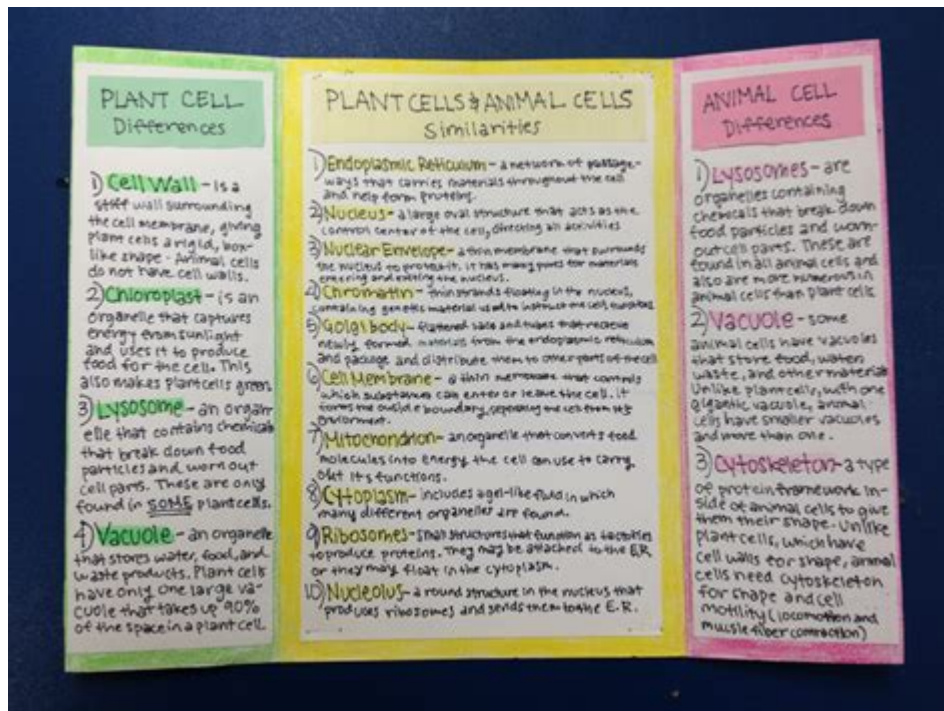 PLANT CELL
Differences
1) Cell Wall - is a
stiff wall surrounding
the cell membrane, giving
plant cells a rigid, box-
like shape - Animal cells
do not have cell walls.
2) Chloroplast - is an
organelle that captures
energy from sunlight
and uses it to produce
food for the cell. This
also makes plant cells green.
3) Lysosome - an organ-
elle that contains chemicals
that break down food
particles and worn out
cell parts. These are only
found in SOME plant cells.
4) Vacuole - an organelle
that stores water, food, and
waste products. Plant cells
have only one large va-
cuole that takes up 90%
of the space in a plant cell.
PLANT CELLS & ANIMAL CELLS
Similarities
1) Endoplasmic Reticulum - a network of passage-
ways that carries materials throughout the cell
and help form proteins.
2) Nucleus - a large oval structure that acts as the
control center of the cell, directing all activities
3) Nuclear Envelope - a thin membrane that surrounds
the nucleus to protect it. It has many pores for materials
entering and exiting the nucleus.
4) Chromatin - thin strands floating in the nucleus,
containing genetic material used to instruct the cell
5) Golgi body - flattened sacs and tubes that recieve
newly formed materials from the endoplasmic reticulum
and package and distribute them to other parts of the cell
6) Cell Membrane - a thin membrane that controls
which substances can enter or leave the cell. It
forms the outside boundary, separating the cell from its
enviorment.
7) Mitochondrion - an organelle that converts food
molecules into energy the cell can use to carry
out it's functions.
8) Cytoplasm - includes a gel-like fluid in which
many different organelles are found.
9) Ribosomes - small structures that function as factories
to produce proteins. They may be attached to the E.R.
or they may float in the cytoplasm.
10) Nucleolus - a round structure in the nucleus that
produces ribosomes and sends them to the E.R.
ANIMAL CELL
Differences
1) Lysosomes - are
organelles containing
chemicals that break down
food particles and worn-
out cell parts. These are
found in all animal cells and
also are more numerous in
animal cells than plant cells
2) Vacuole - some
animal cells have vacuoles
that store food, water,
waste, and other materials
Unlike plant cells, with one
gigantic vacuole, animal
cells have smaller vacuoles
and more than one.
3) Cytoskeleton - a type
of protein framework in-
side of animal cells to give
them their shape. Unlike
plant cells, which have
cell walls for shape, animal
cells need cytoskeleton
for shape and cell
motility (locomotion and
muscle fiber contraction)